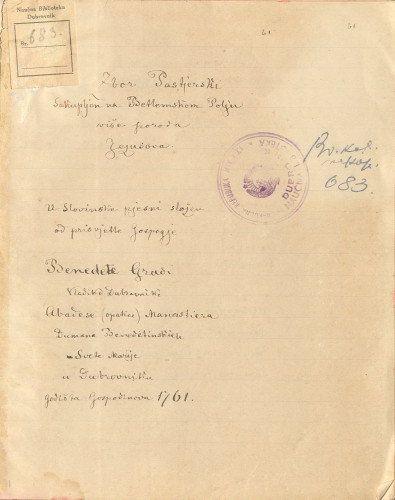 Naučna Biblioteka
Dubrovnik
Br. 683.
Zbor Pastjerski
Sakupljen na Betlemskom Polju
više poroda
Jezusova
U Slovinske pjesni složen
od prisvjetle Gospogje
Benedete Gradi
Vladike Dubrovačke
Abadese (opatice) Manastiera
Dumana Benedetinskieh
Svete Marije
u Dubrovniku
Godišta Gospodinova 1761.
683.